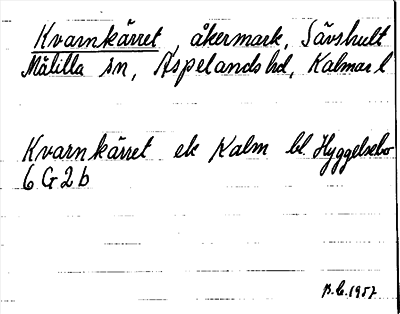 Kvarnkärret, åkermark, Sävshult
Målilla sn, Aspelands hd, Kalmar l
Kvarnkärret ek Kalm bl Hyggelsebo
6 G 2 b
B.E. 1957